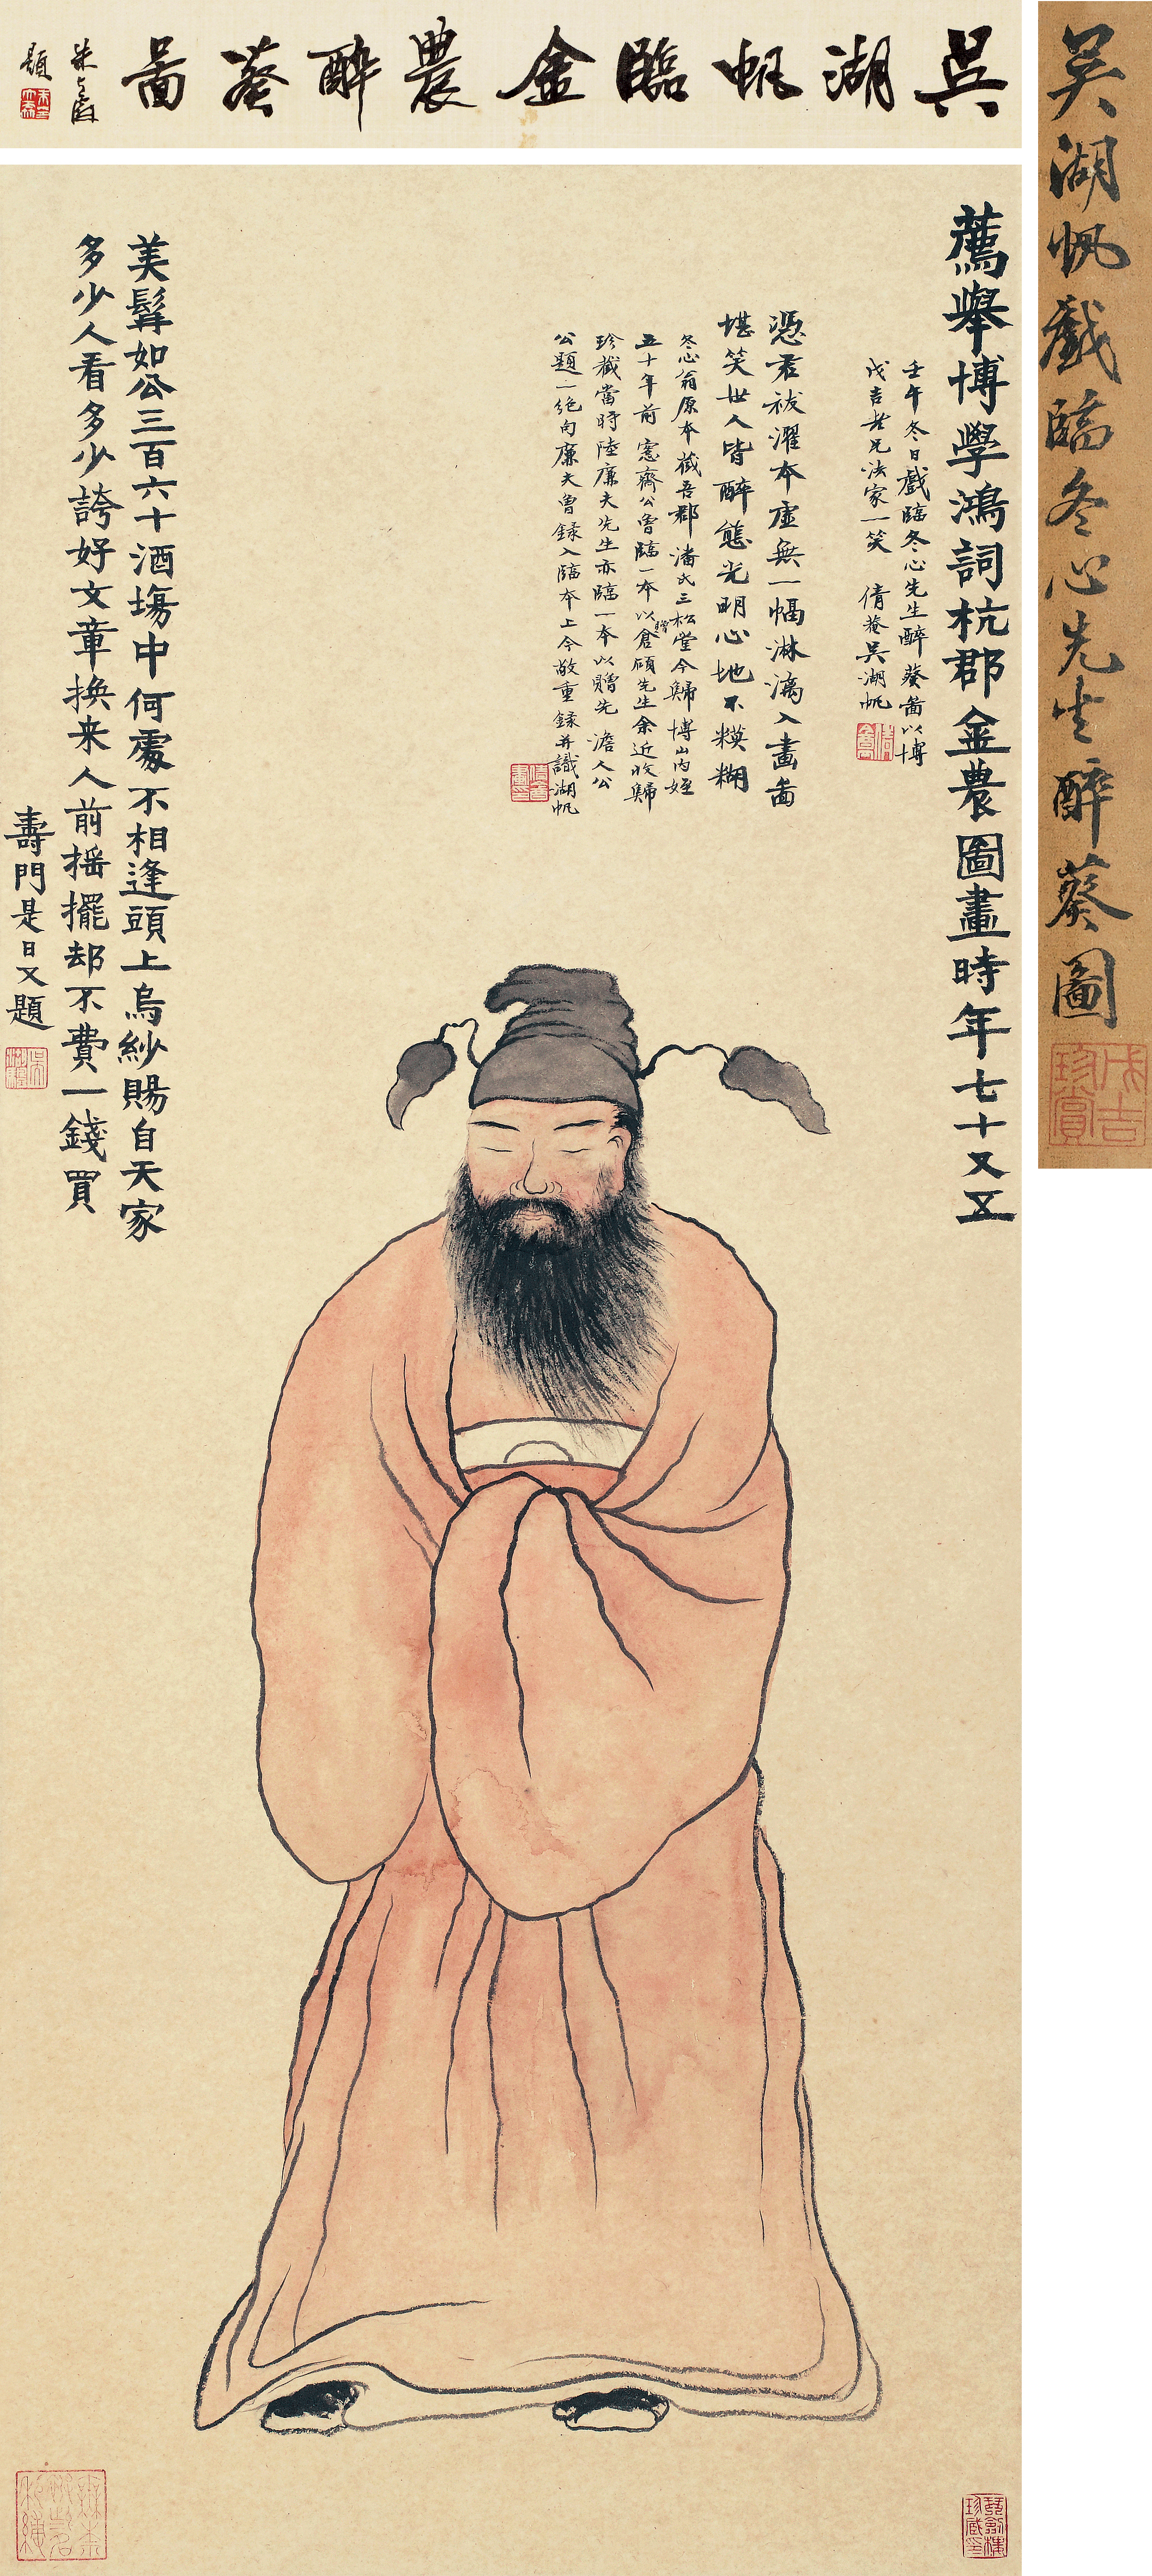 吴湖帆戲臨冬心先生醉葵圖
戊吉珍賞
吳湖帆臨金農醉葵啚
題
薦舉博學鴻詞杭郡金農圖畫時年七十又五
壬午冬日戲臨冬心先生醉葵啚以博
戊吉老兄法家一笑 倩菴吴湖帆
憑君祓濯本虛無一幅淋漓入畫啚
堪笑世人皆醉態光明心地不糢糊
冬心翁原本藏吾郡潘氏三松堂今歸博山内姪
五十年前愙齋公曾臨一本以贈倉碩先生余近收歸
珍藏當時陸廉夫先生亦臨一本以贈先澹人公
公題一絶句廉夫曾録入臨本上今敬重録并識湖帆
美髯如公三百六十酒場中何處不相逢頭上烏紗賜自天家
多少人看多少誇好文章換来人前揺擺却不費一錢買
壽門是日又題